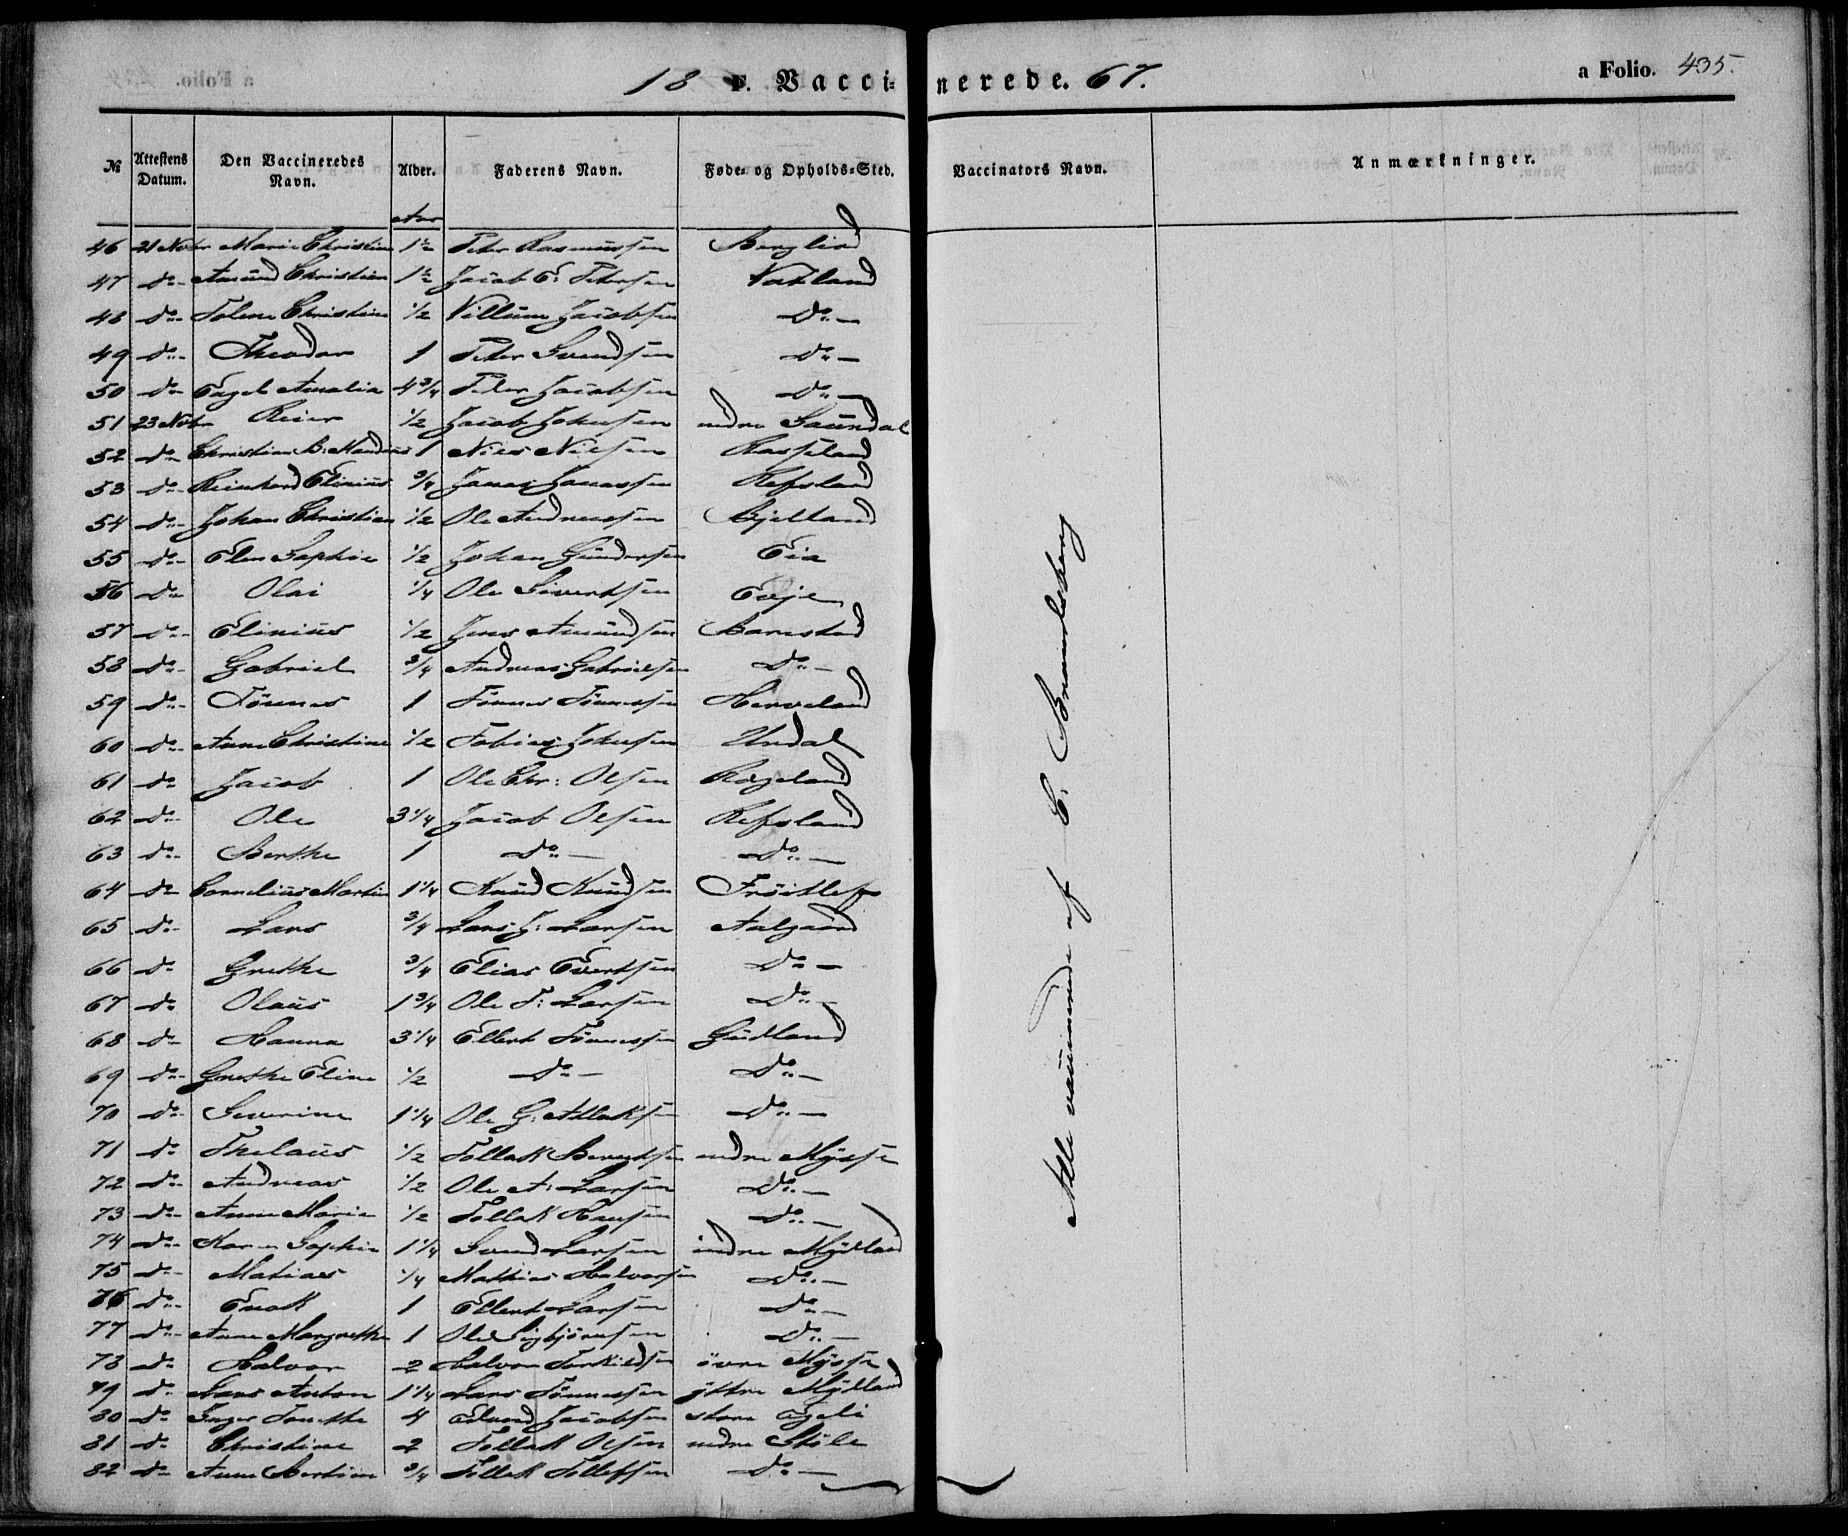 18 F. Vaccinerede. 67. a Folio. 435.
№ Attestens Datum. Den Vaccineredes Navn. Alder. Faderens Navn. Føde- og Opholds-Sted. Vaccinators Navn. Anmærkninger.
Aar
46 21 Nobr Marie Christine 1½ Peter Rasmussen Berglind
47 do Amünd Christian 1½ Jacob E. Petersen Vatland
48 do Tolene Christine ½ Villum Jacobsen Do
49 do Theodor 1 Peter Svendsen Do
50 do Engel Amalia 4¾ Peder Jacobsen Do
51 23 Nobr Reier ½ Jacob Johnsen nedre Saündal
52 do Christian B. Mandius 1 Niels Nielsen Rosseland
53 do Reinhard Elinius ¾ Jonas Jonassen Refsland
54 do Johan Christian ½ Ole Andreassen Bjelland
55 do Elen Sophie ½ Johan Gündersen Eia
56 do Olai ¼ Ole Sivertsen Evje
57 do Elinius ½ Jens Amündsen Barestad
58 do Gabriel ¾ Andreas Gabrielsen Do
59 do Tönnes 1 Tönnes Tönnessen Herveland
60 do Anne Christine ½ Tobias Johnsen Urdal
61 do Jacob 1 Ole Chr: Olsen Rægeland
62 do Ole 3¼ Jacob Olsen Refsland
63 do Berthe 1 Do Do
64 do Cornelius Martin 1¼ Knüd Knüdsen Fröitlog
65 do Lars ¾ Lars J. Larsen Aalgaard
66 do Grethe ¾ Elias Evertsen Do
67 do Olaüs 1¾ Ole T: Larsen Do
68 do Hanna 3¼ Ellert Tönnessen Güdland
69 do Grethe Eline ½ Do Do
70 do Severine 1¼ Ole G: Atlaksen Do
71 do Thelaüs ½ Tollak Berentsen nedre Myssse
72 do Andreas ½ Ole A: Larsen Do
73 do Anne Marie ½ Tollak Hansen Do
74 do Karen Sophie 1¼ Svend Larsen indre Mydland
75 do Matias ¼ Mathias Halvorsen Do
76 do Enok 1 Ellert Larsen Do
77 do Anne Margrethe 1 Ole Sigbjörnsen Do
78 do Halvor 2 Halvor Torkildsen övre Mysse
79 do Lars Anton 1¼ Lars Tönnessen yttre Mydland
80 do Inger Tonethe 4 Edvard Jacobsen store Egeli
81 do Christine 2 Tollak Olsen nedre Stöle
82 do Anne Bertine ¾ Tollak Tollefsen Do
Alle vaccinerede af C. Bruunlesberg